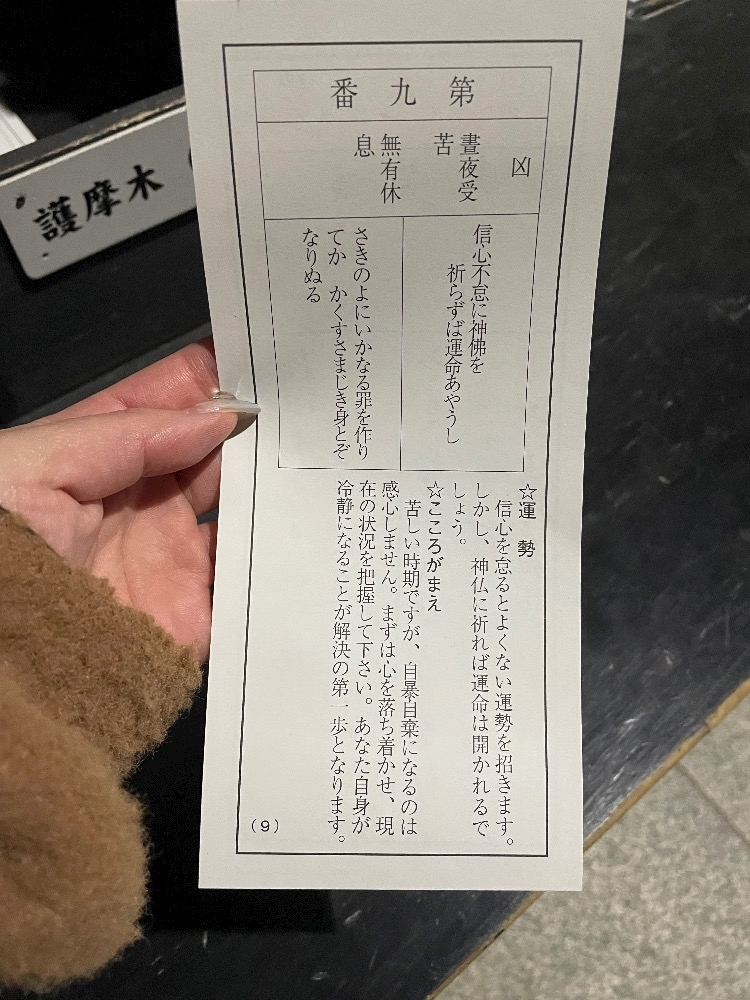 第九番
凶
晝夜受
苦
無有休
息
信心不怠に神佛を
祈らずば運命あやうし
さきのよにいかなる罪を作り
てか　かくすさまじき身とぞ
なりぬる
☆運　勢
信心を怠るとよくない運勢を招きます。
しかし、神仏に祈れば運命は開かれるで
しょう。
☆こころがまえ
苦しい時期ですが、自暴自棄になるのは
感心しません。まずは心を落ち着かせ、現
在の状況を把握して下さい。あなた自身が
冷静になることが解決の第一歩となります。
(9)
護摩木